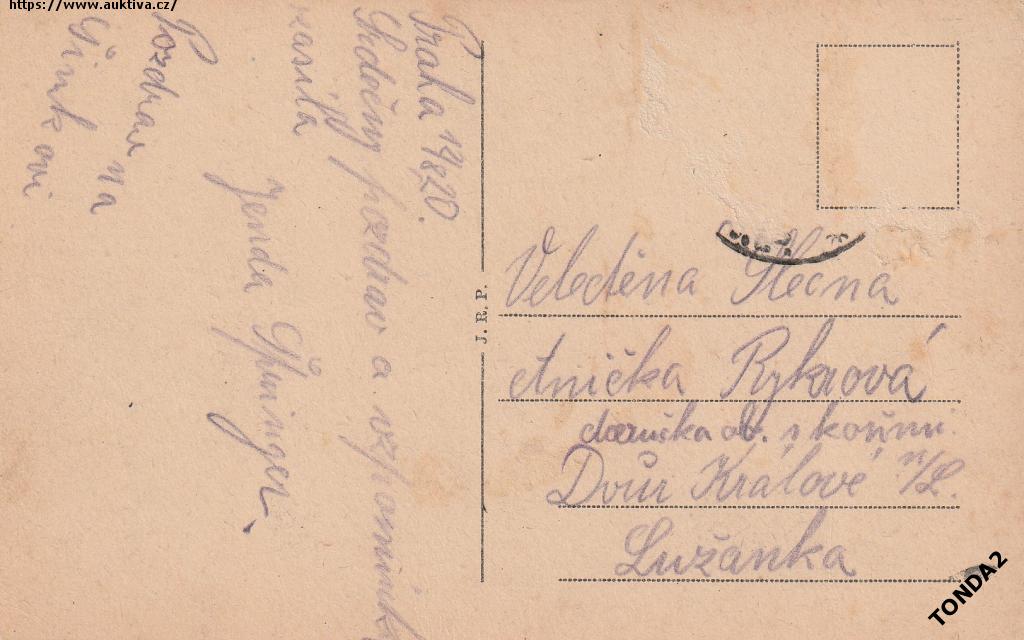 https://www.auktiva.cz/
Praha 19 20.
Srdečný pozdrav a vzpomínku
zasílá
Jenda Springer.
Pozdrav na
J. R. P.
Veleděna Slečna
Anička Rykrová
Dvůr Králové n/L.
Lužanka
TONDA2